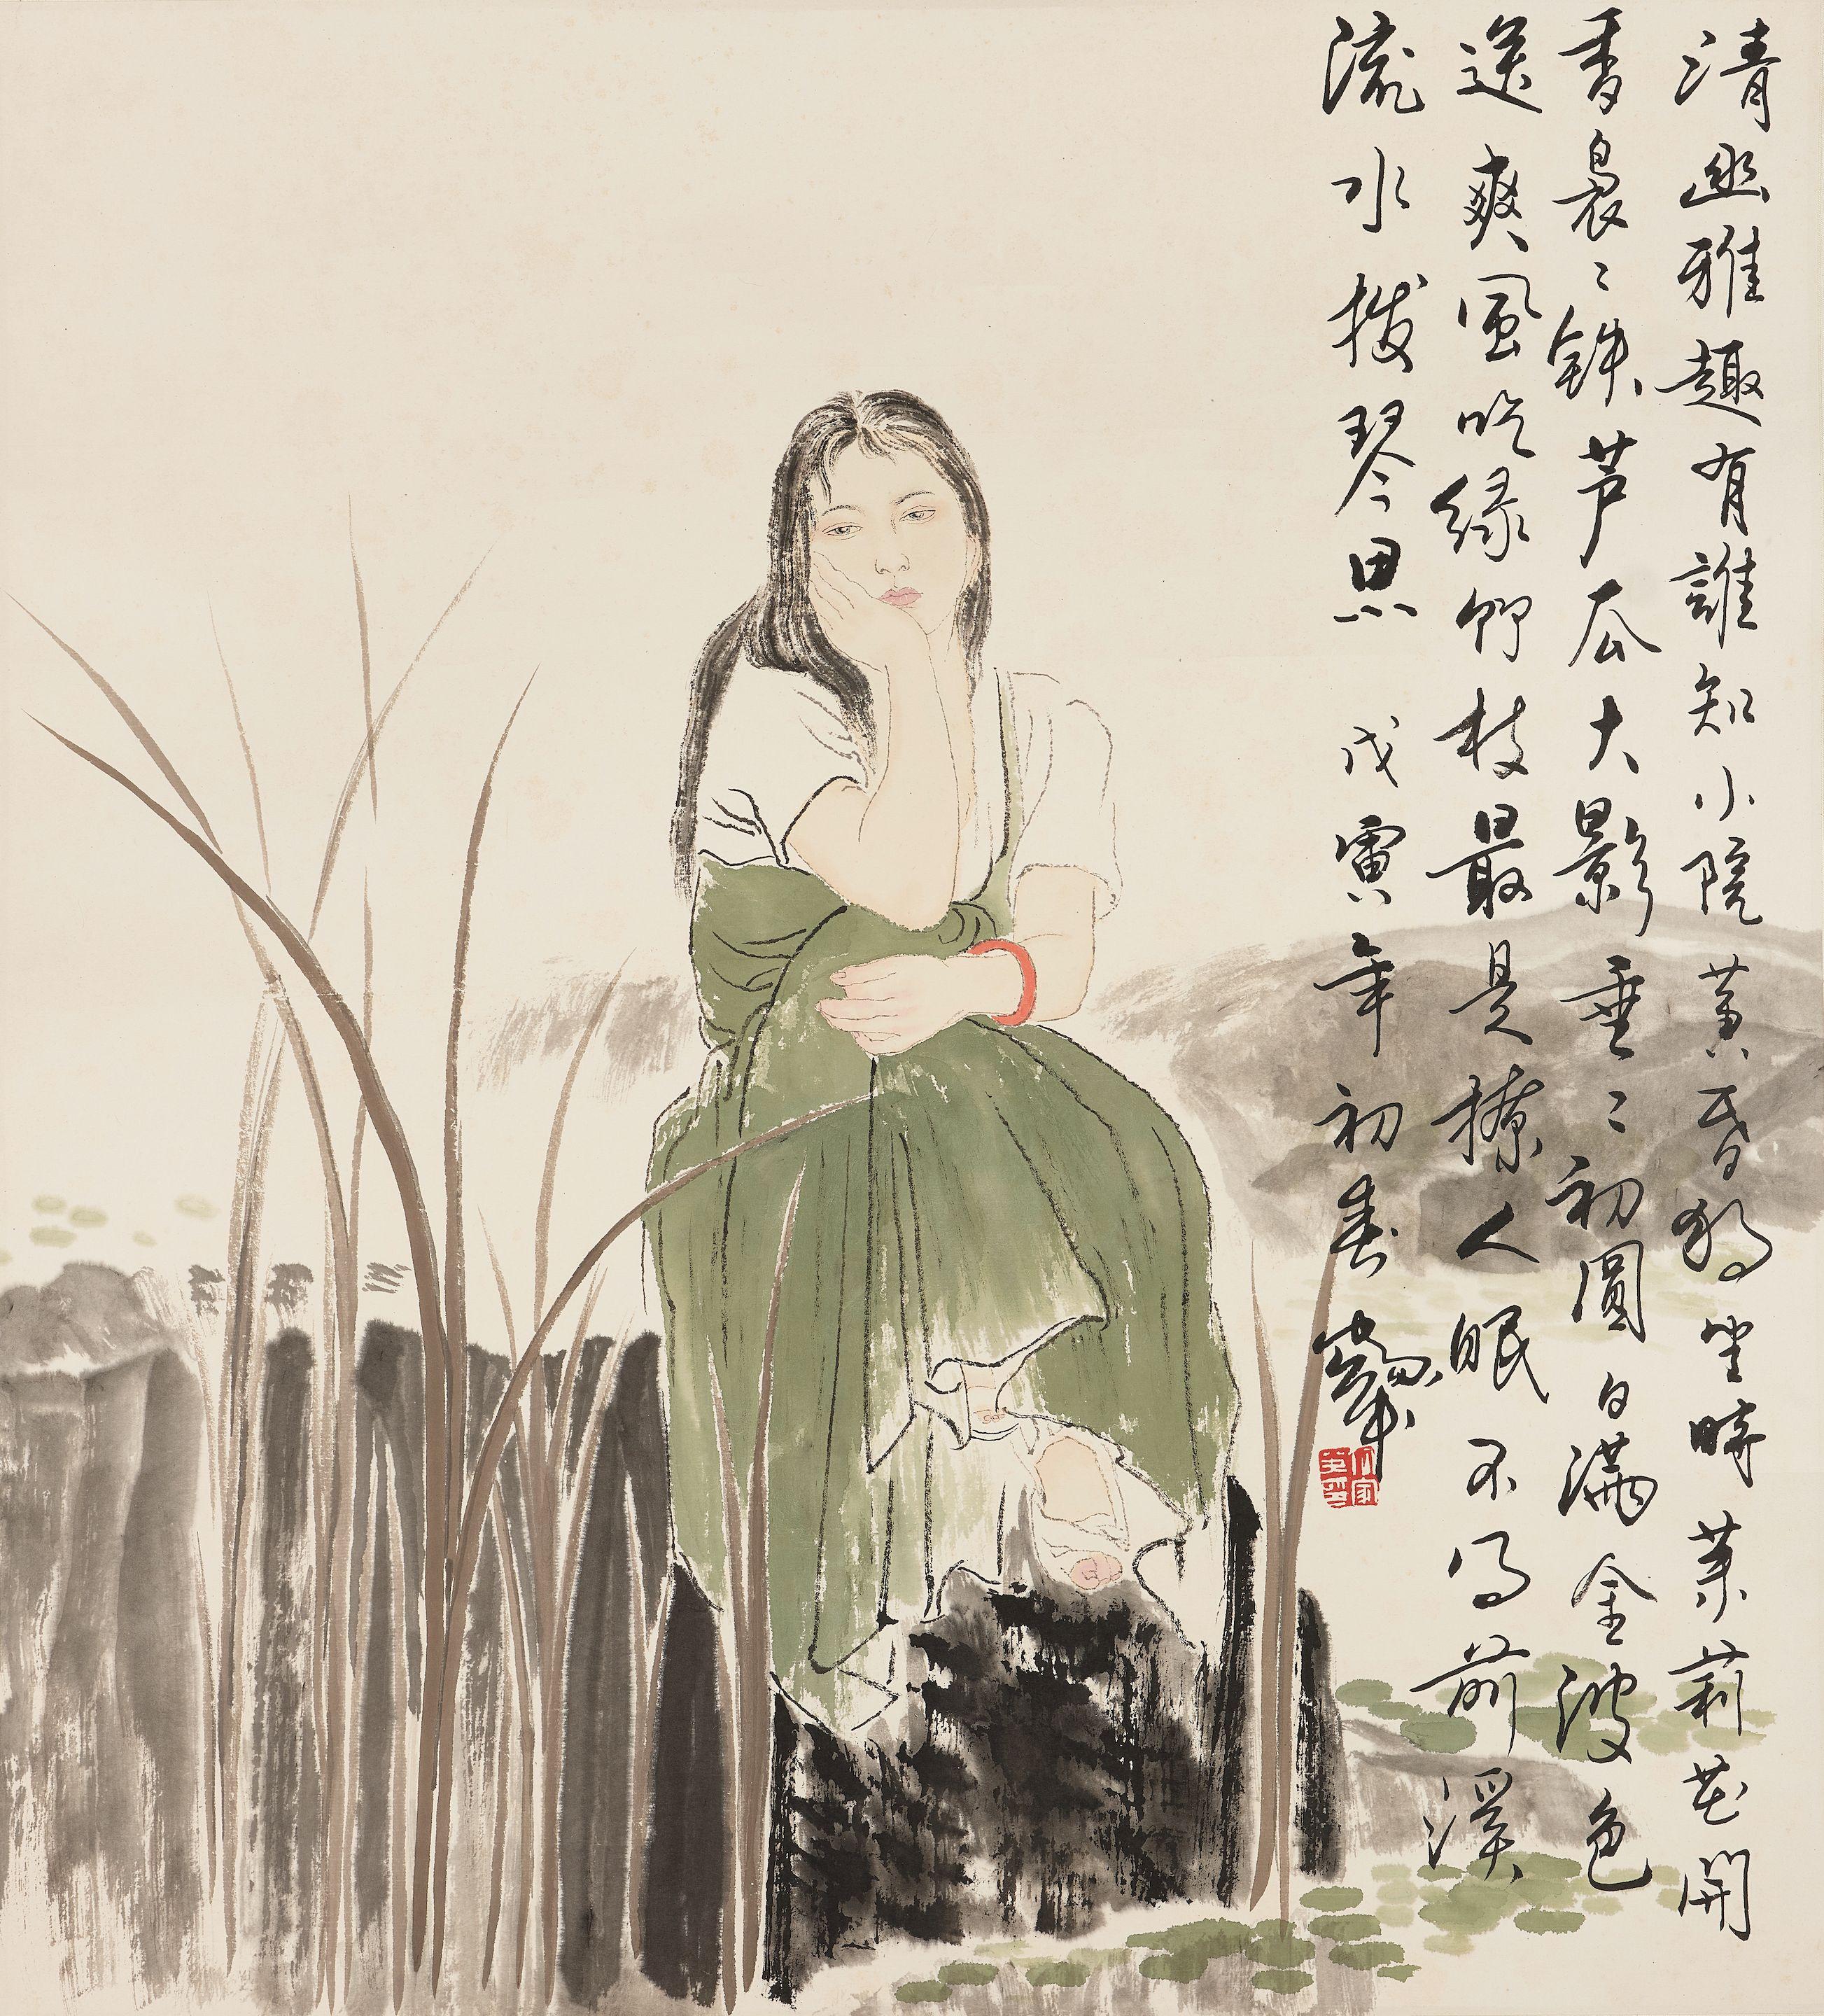 清幽雅趣有誰知小院黄昏獨坐時茉莉花開
香裊〻鉄芦瓜大影垂〻初圓滿金波色
送爽風吹緑枝最是撩人眠不得前溪
流水撥琴思 戊寅年初春